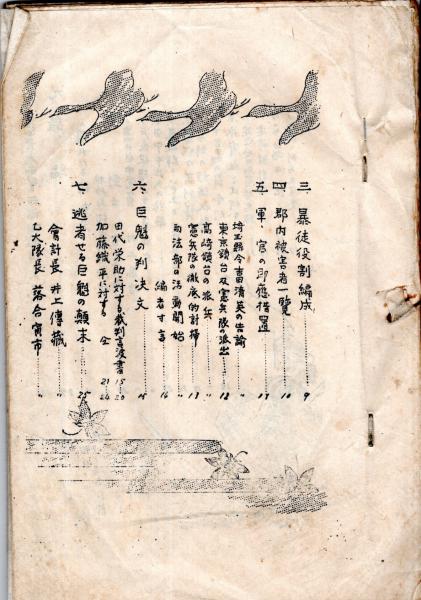 三、暴徒役割編成………9
四、郡内被害者一覧………10
五、軍、官の即應措置………11
埼玉縣令吉田清英の告諭………〃
東京鎮台及憲兵隊の派出………12
高崎鎮台の派兵………〃
憲兵隊の徹底的計掃………13
司法部の活動開始………〃
編者寸言………14
六、巨魁の判決文………15
田代栄助に対する裁判言渡書 15-20
加藤織平に対する 仝 21-24
七、逃者せる巨魁の顛末………25
會計長 井上傳藏………〃
乙大隊長 落合寅市………〃